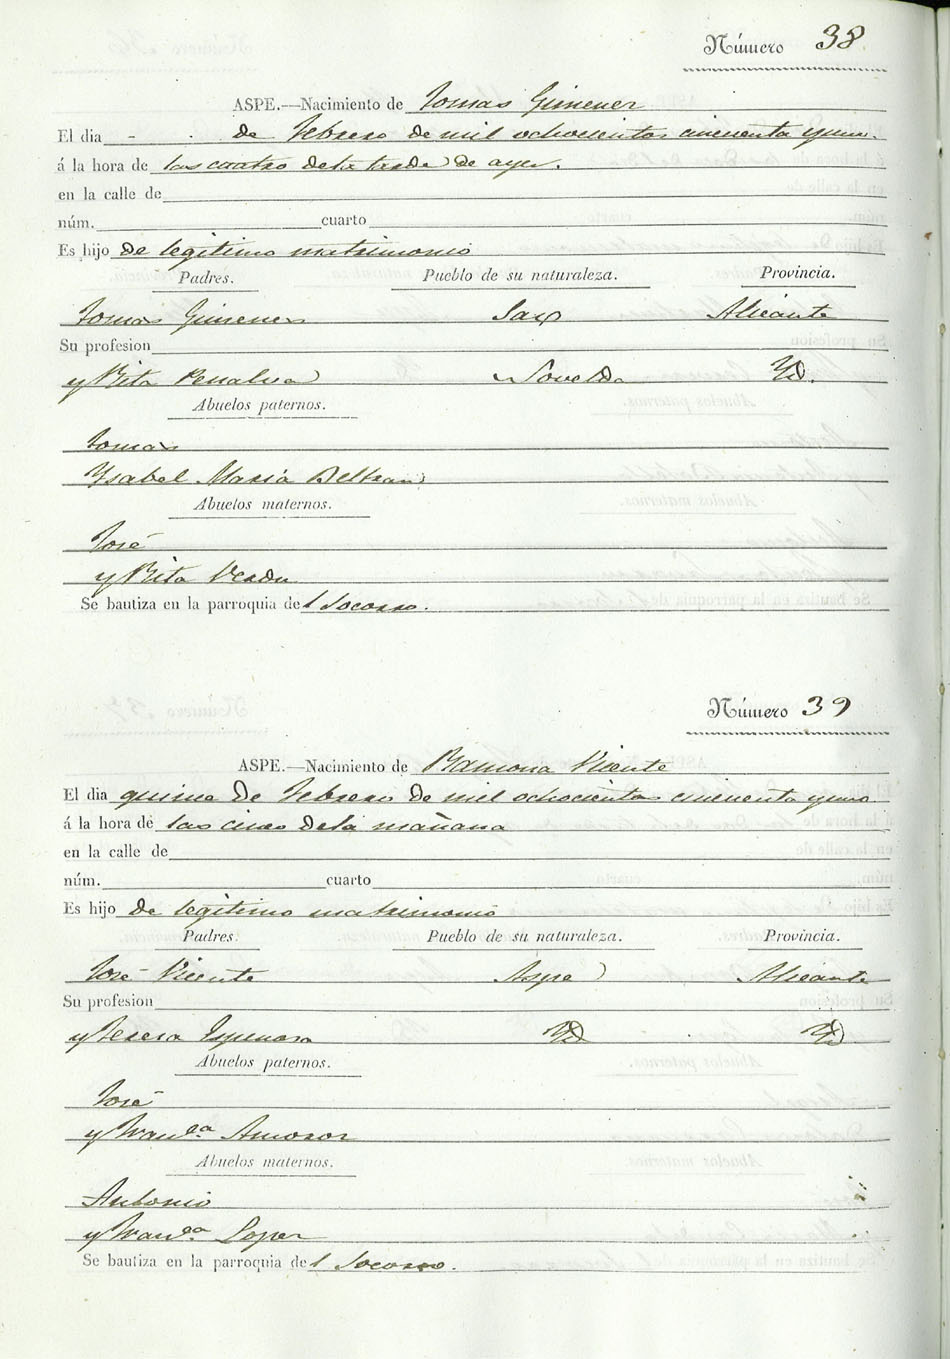 Número 38
ASPE.—Nacimiento de Tomas Gimenez
El dia - . de Febrero de mil ochocientos cincuenta y uno.
á la hora de las cuatro de la tarde de ayer.
en la calle de
núm. cuarto
Es hijo de legitimo matrimonio
Padres. Pueblo de su naturaleza. Provincia.
Tomas Gimenez Sax Alicante
Su profesion
y Rita Penalva Novelda Yd.
Abuelos paternos.
Tomas
Ysabel Maria Beltran
Abuelos maternos.
José
y Rita Verdu
Se bautiza en la parroquia del Socorro.
Número 39
ASPE.—Nacimiento de Ramona Vicente
El dia quince de Febrero de mil ochocientos cincuenta y uno
á la hora de las cinco de la mañana
en la calle de
núm. cuarto
Es hijo de legitimo matrimonio
Padres. Pueblo de su naturaleza. Provincia.
José Vicente Aspe Alicante
Su profesion
y Teresa Espinosa Yd Yd
Abuelos paternos.
José
y Fran.ca Amoros
Abuelos maternos.
Antonio
y Fran.ca Lopez
Se bautiza en la parroquia del Socorro.